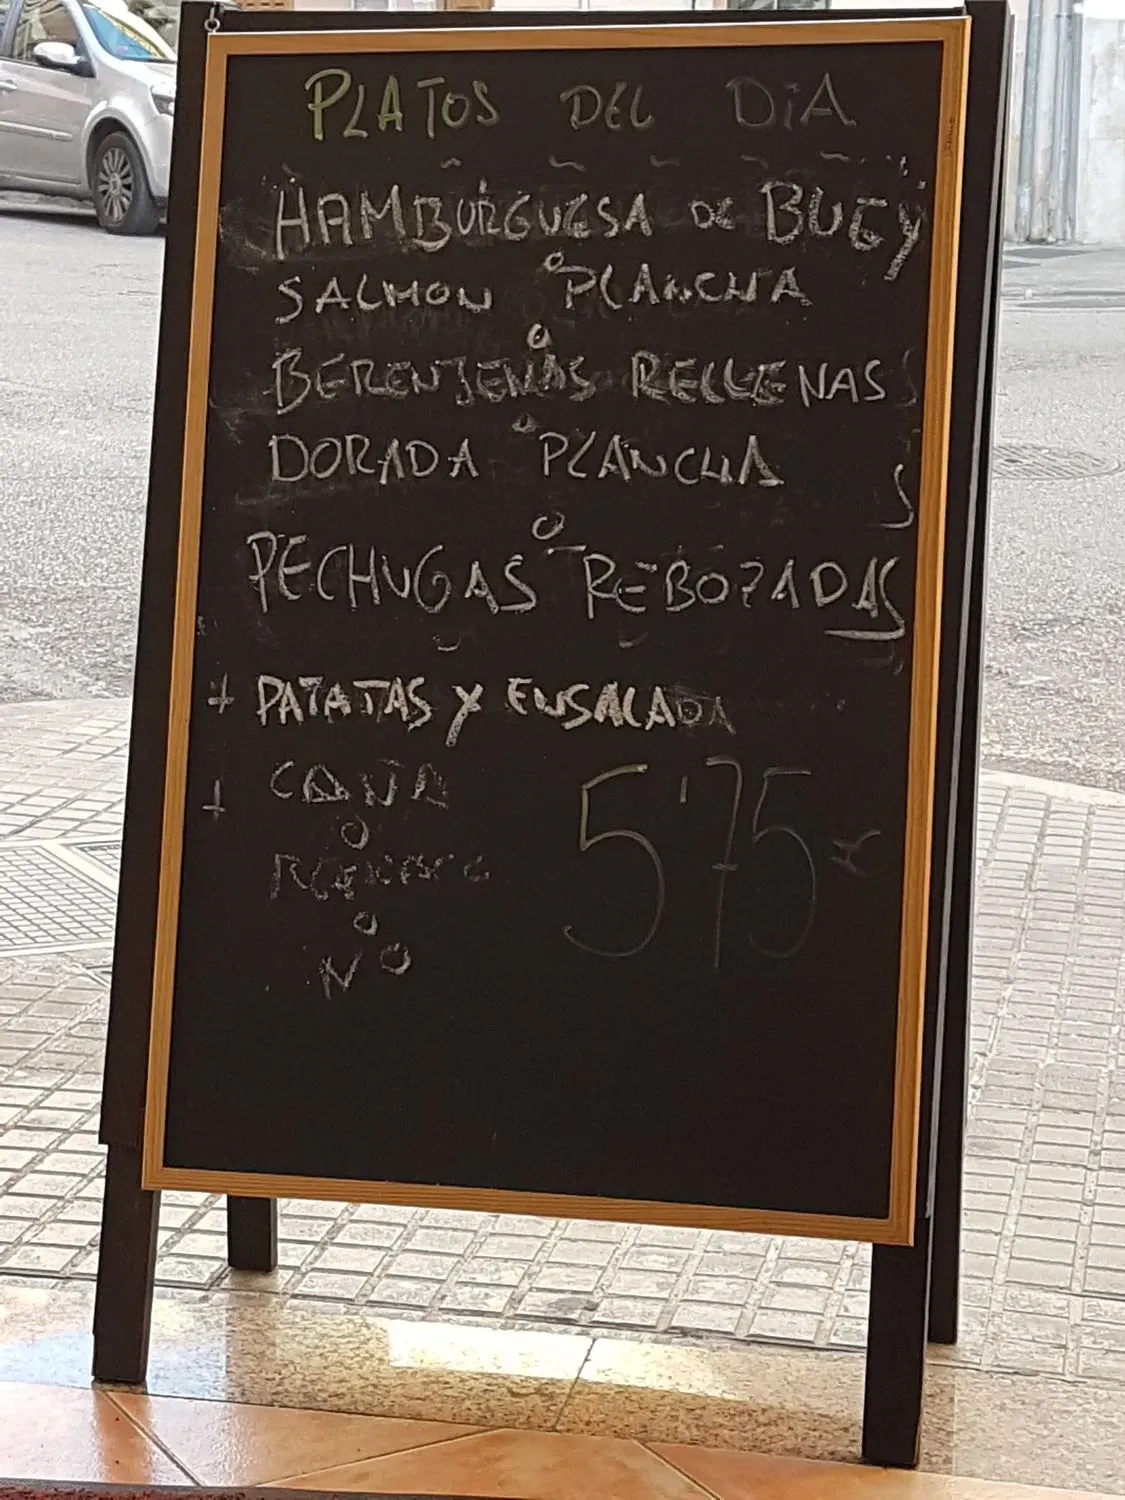 PLATOS DEL DÍA
HAMBURGUESA DE BUEY
o
SALMON PLANCHA
o
BERENJENAS RELLENAS
o
DORADA PLANCHA
o
PECHUGAS REBOZADAS
+ PATATAS Y ENSALADA
+ CAÑA 5'75 €
o
REFRESCO
o